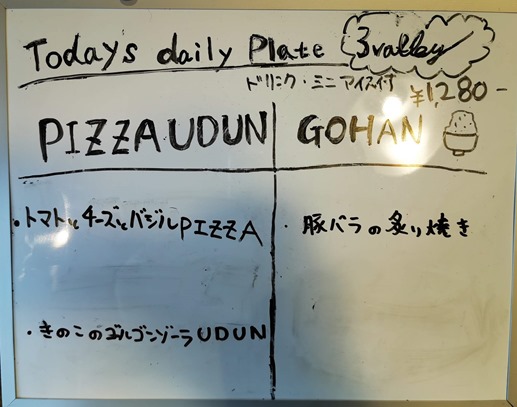 Todays daily Plate 3valley
ドリンク・ミニアイス付
¥1,280-
PIZZA UDUN
GOHAN
・トマトとチーズとバジルPIZZA
・豚バラの炙り焼き
・きのこのゴルゴンゾーラUDUN